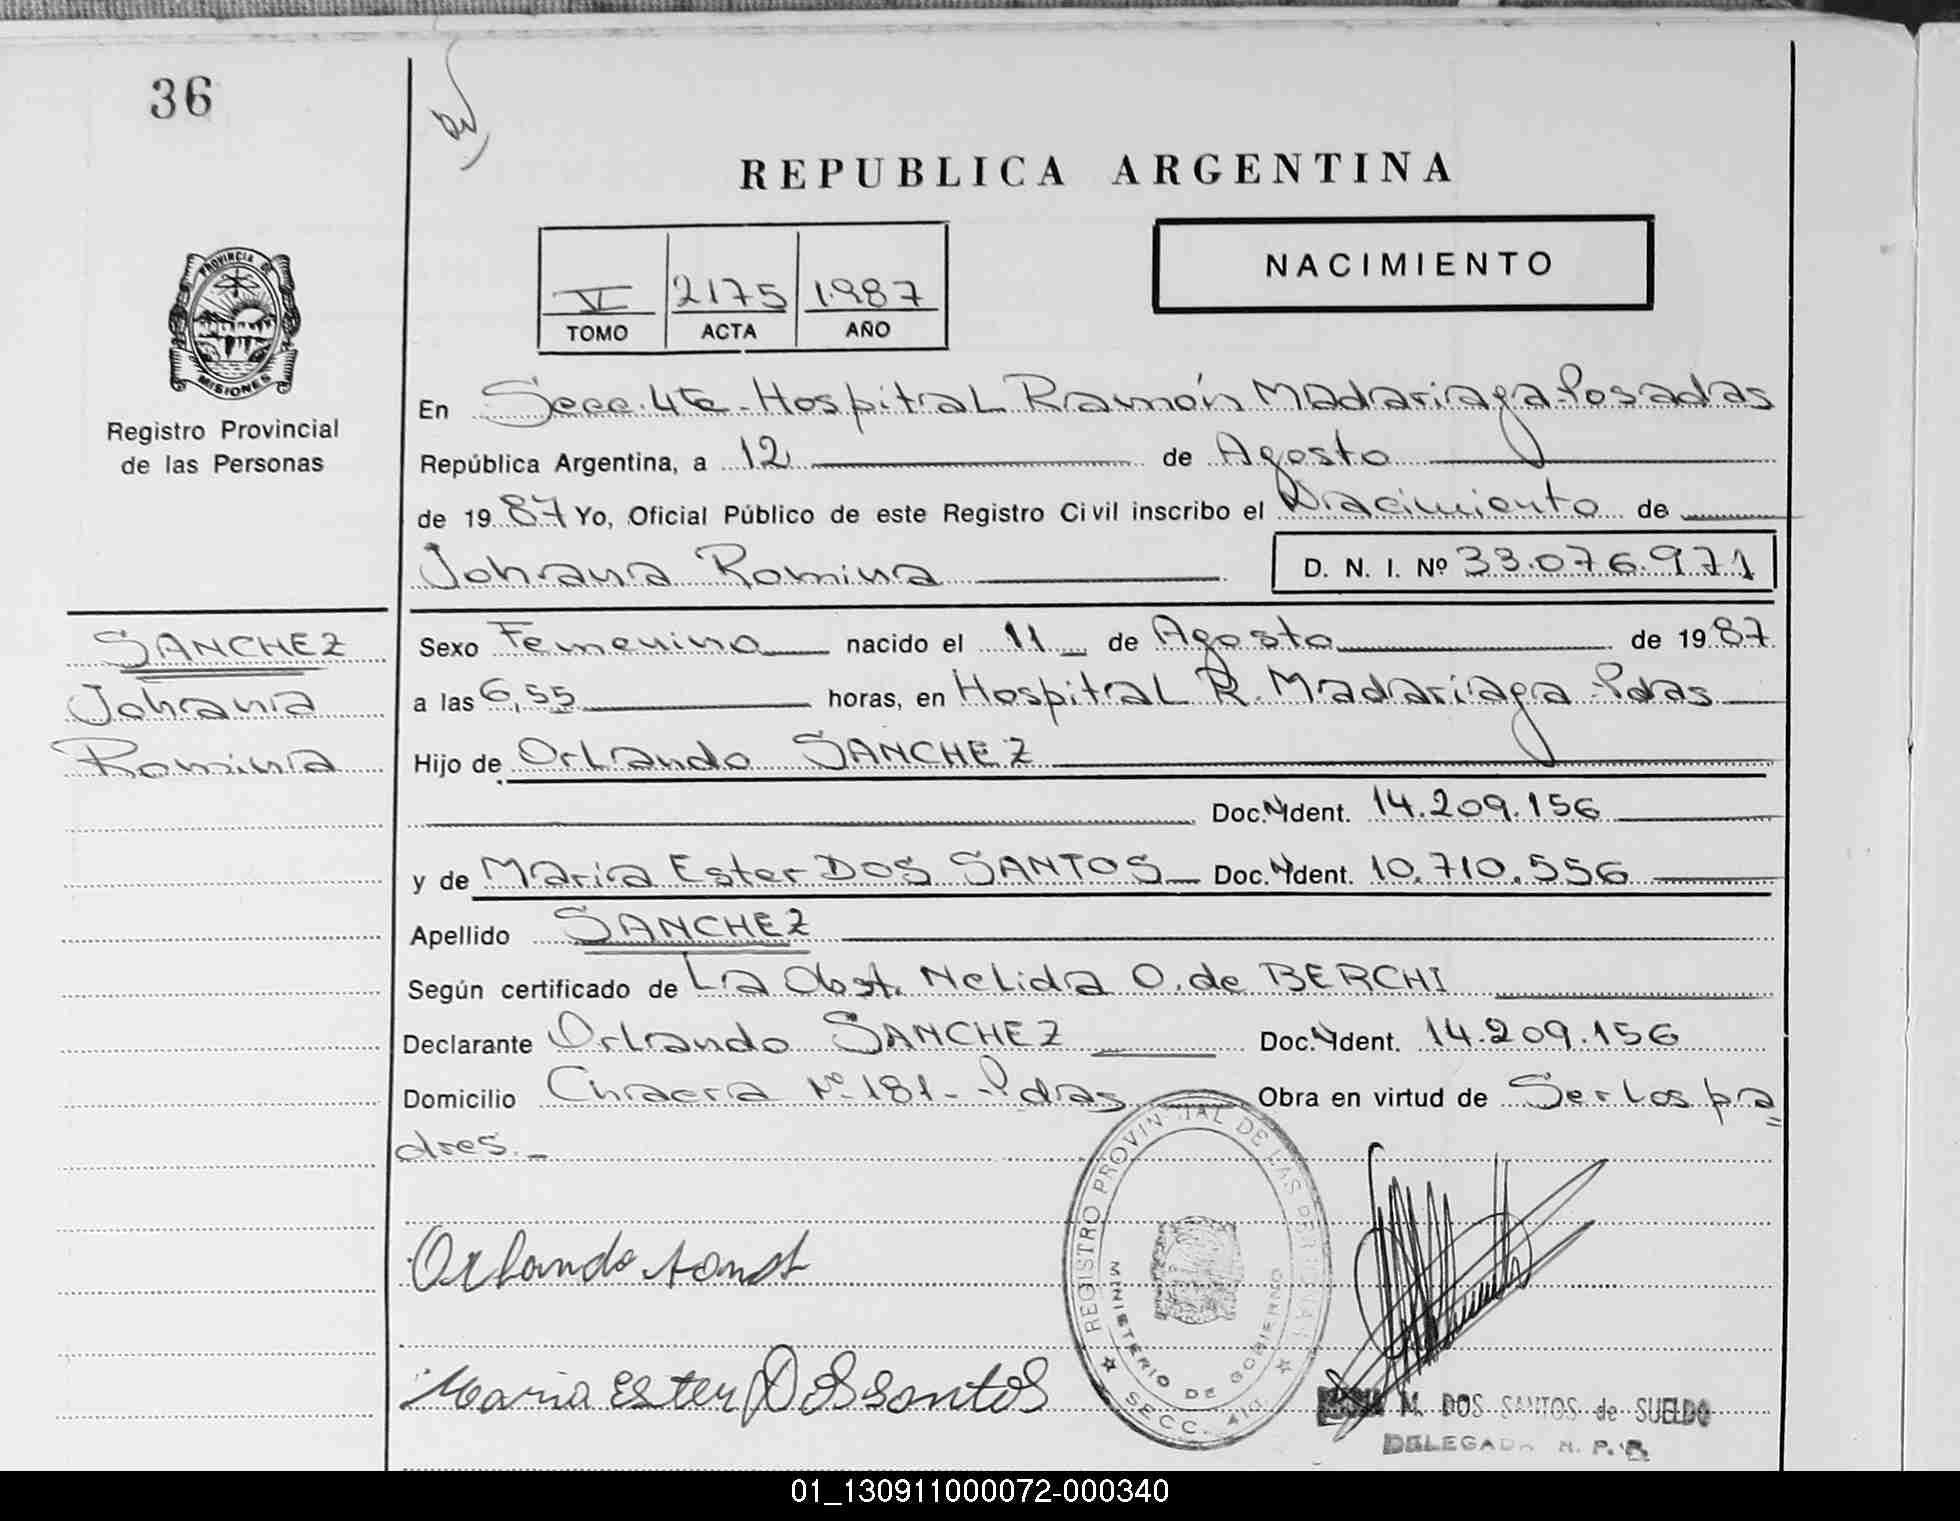 36
REPUBLICA ARGENTINA
VI 2175 1987
TOMO ACTA AÑO
NACIMIENTO
PROVINCIA DE MISIONES
Registro Provincial
de las Personas
En Secc. 4ta - Hospital Ramón Madariaga - Posadas
República Argentina, a 12 de Agosto
de 1987 Yo, Oficial Público de este Registro Civil inscribo el Nacimiento de
Johana Romina D. N. I. Nº 33.076.971
SANCHEZ
Johana
Romina
Sexo Femenino nacido el 11 de Agosto de 1987
a las 6,55 horas, en Hospital R. Madariaga - Pdas
Hijo de Orlando SANCHEZ
Doc. Ident. 14.209.156
y de Maria Ester DOS SANTOS Doc. Ident. 10.710.556
Apellido SANCHEZ
Según certificado de La Obst. Nelida O. de BERCHI
Declarante Orlando SANCHEZ Doc. Ident. 14.209.156
Domicilio Chacra Nº 181 - Pdas Obra en virtud de Ser los pa=
dres.-
Orlando
Maria Ester Dos santos
REGISTRO PROVINCIAL DE LAS PERSONAS
MINISTERIO DE GOBIERNO
SECC. 4ta.
M. DOS SANTOS de SUELDO
DELEGADA R. P. P.
01_130911000072-000340